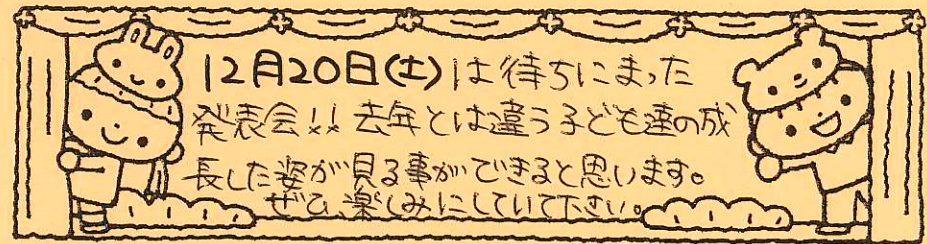 12月20日(土)は待ちにまった
発表会!! 去年とは違う子ども達の成
長した姿が見る事ができると思います。
ぜひ、楽しみにしていて下さい。